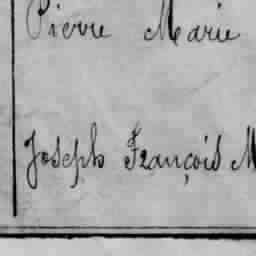 Pierre Marie
Joseph François M